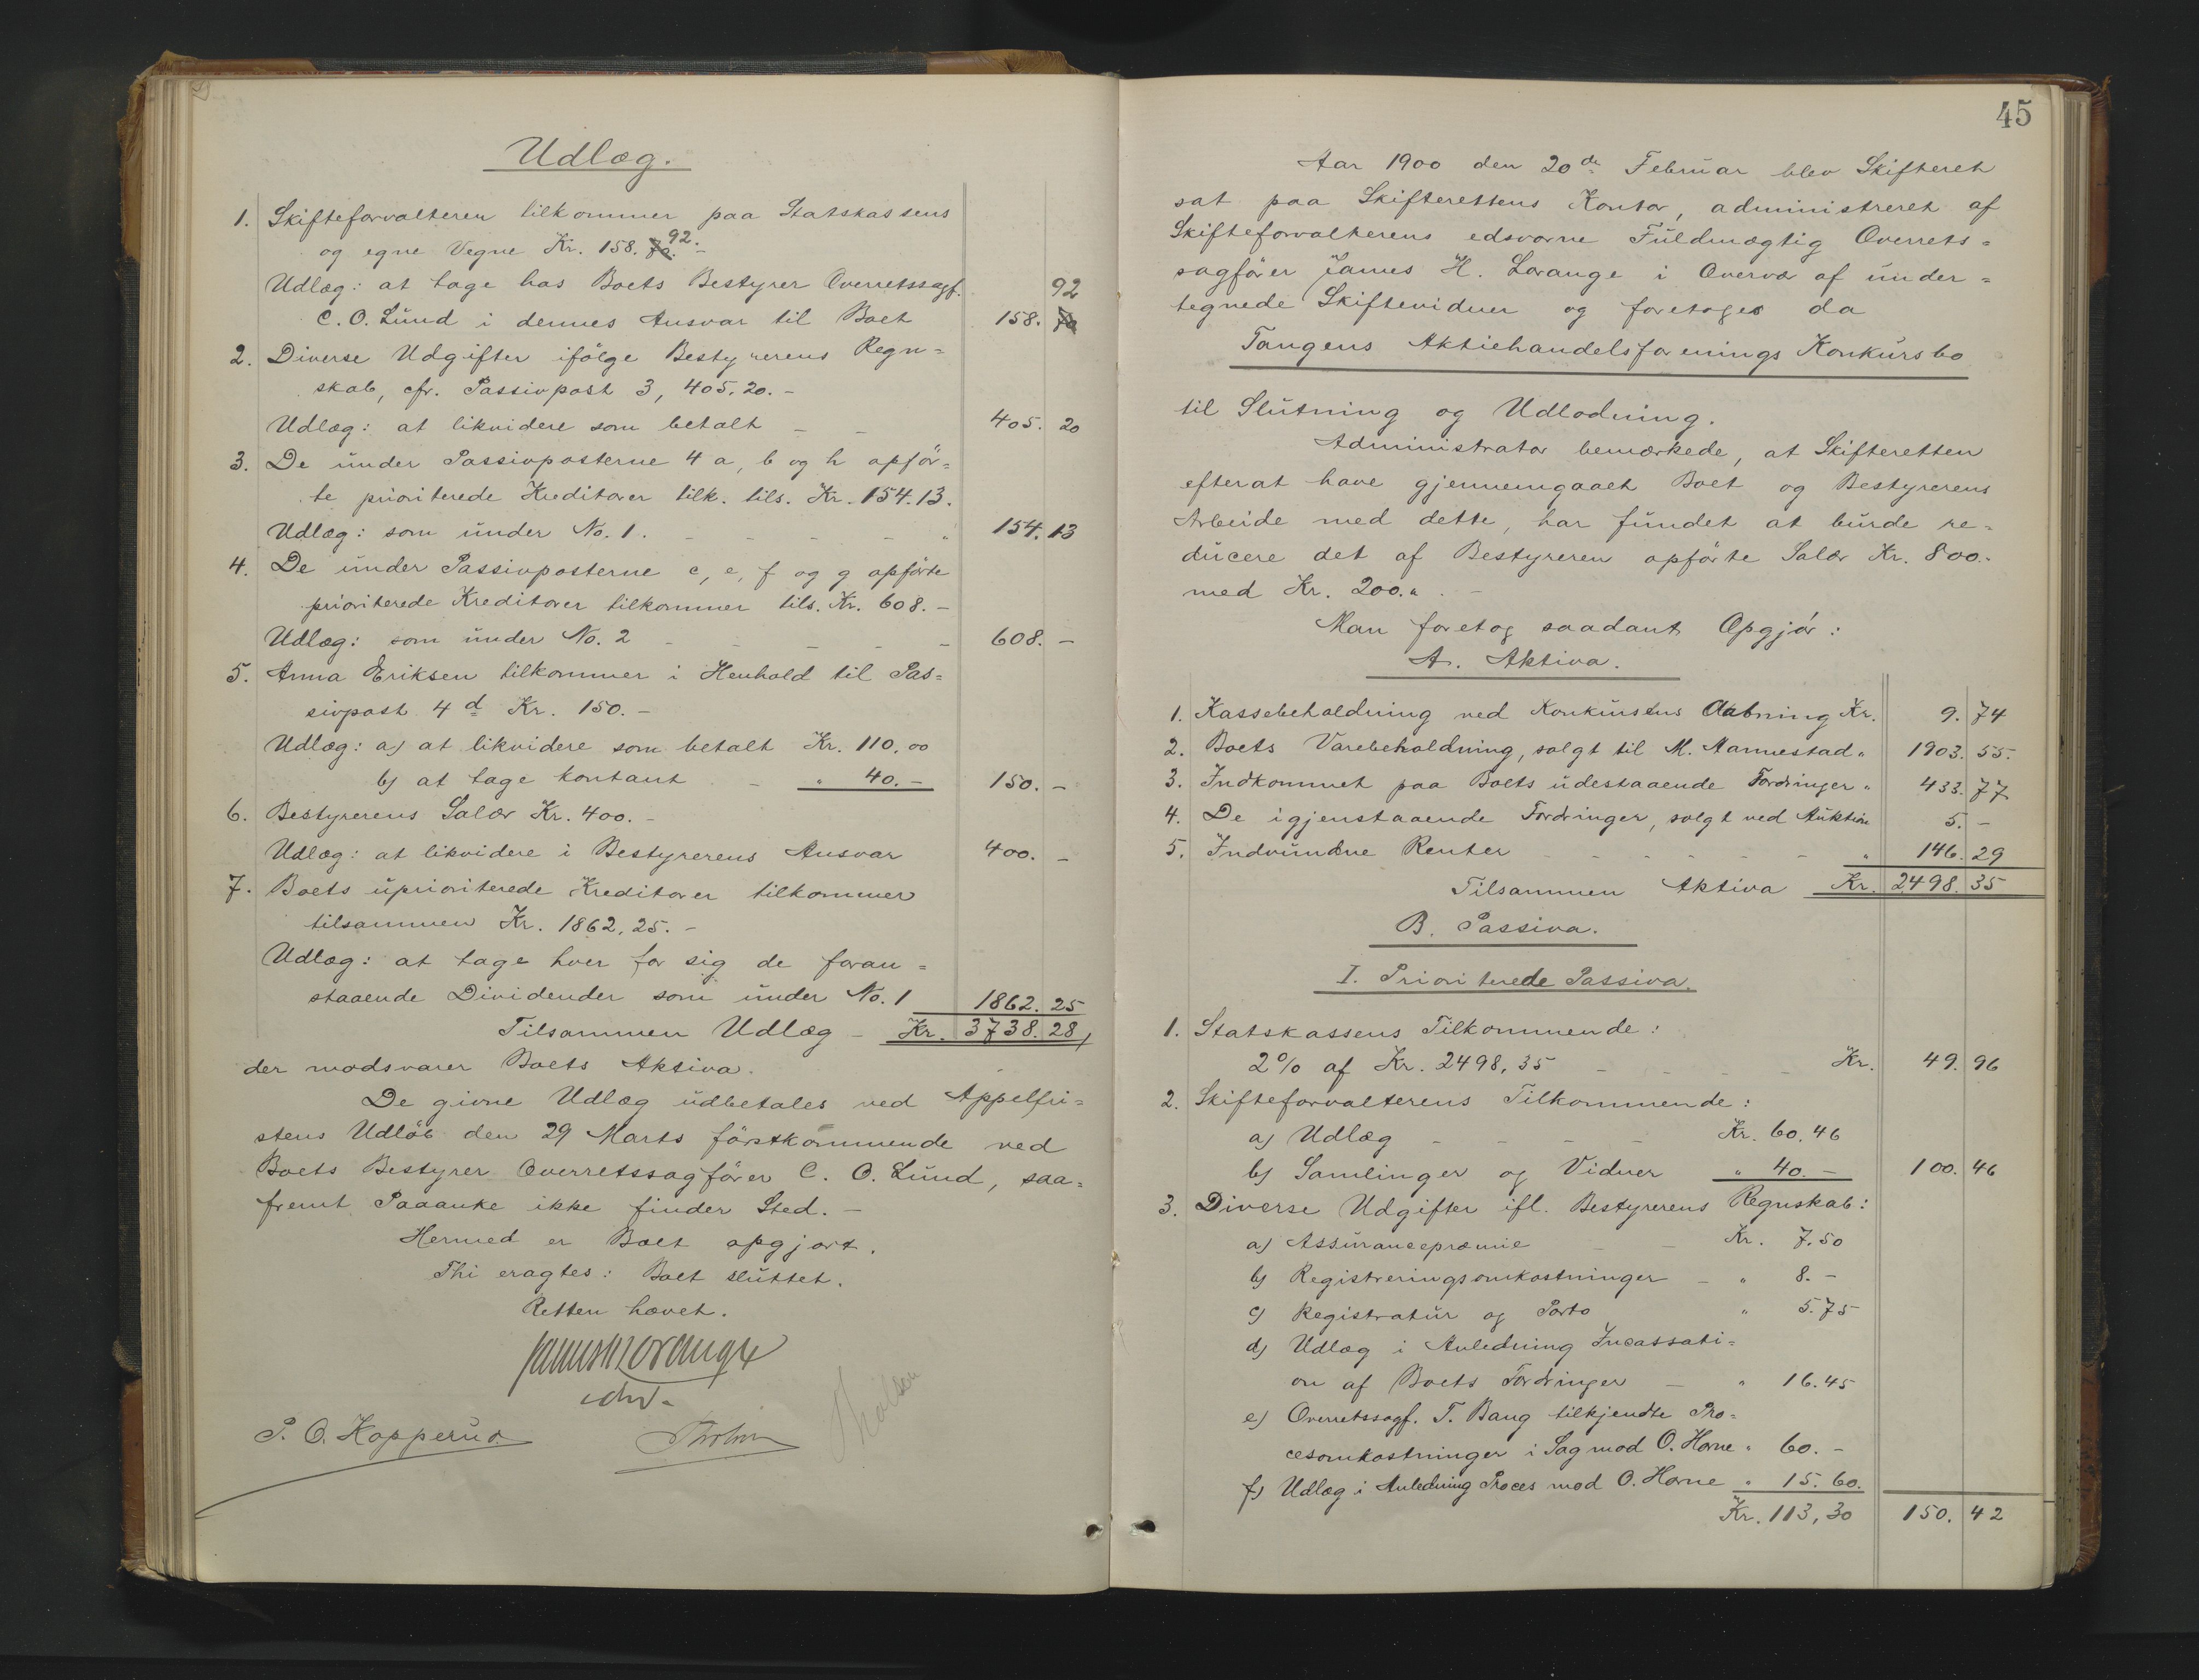 Udlæg.
1. Skifteforvalteren tilkommer paa Statskassens
og egne Vegne Kr. 158. 92. -
Udlæg: at tage hos Boets Bestyrer Overretssagf. 92
C. O. Lund i dennes Ansvar til Boet 158.
2. Diverse Udgifter ifölge Bestyrerens Regn=
skab, cfr. Passivpost 3, 405,20. -
Udlæg: at likvidere som betalt - - 405. 20
3. De under Passivposterne 4 a, b og h opför=
te prioriterede Kreditorer tilk. tils. Kr. 154.13.
Udlæg: som under No. 1. - - - - " 154. 13
4. De under Passivposterne c, e, f og g opförte
prioriterede Kreditorer tilkommer tils. Kr. 608. -
Udlæg: som under No. 2 - - - - - 608. -
5. Anna Eriksen tilkommer i Henhold til Pas=
sivpost 4 d Kr. 150. -
Udlæg: a) at likvidere som betalt Kr. 110,00
b) at tage kontant - " 40. - 150. -
6. Bestyrerens Salær Kr. 400. -
Udlæg: at likvidere i Bestyrerens Ansvar 400. -
7. Boets uprioriterede Kreditorer tilkommer
tilsammen Kr. 1862,25. -
Udlæg: at tage hver for sig de foran=
staaende Dividender som under No. 1 1862. 25
Tilsammen Udlæg - Kr. 3738. 28,
der modsvarer Boets Aktiva.
De givne Udlæg udbetales ved Appelfri=
stens Udlöb den 29 Marts förstkommende ved
Boets Bestyrer Overretssagförer C. O. Lund, saa=
fremt Paaanke ikke finder Sted. -
Hermed er Boet opgjort.
Thi eragtes: Boet sluttet.
Retten hævet.
James H Lorange
edsv.
P. O. Kopperud
45
Aar 1900 den 20de Februar blev Skifteret
sat paa Skifterettens Kontor, administreret af
Skifteforvalterens edsvorne Fuldmægtig Overrets=
sagförer James H. Lorange i Overvær af under=
tegnede Skiftevidner og foretoges da
Tangens Aktiehandelsforenings Konkursbo
til Slutning og Udlodning.
Administrator bemærkede, at Skifteretten
efter at have gjennemgaaet Boet og Bestyrerens
Arbeide med dette, har fundet at burde re=
ducere det af Bestyreren opförte Salær Kr. 800.-
med Kr. 200." . -
Man foretog saadant Opgjör:
A. Aktiva.
1. Kassebeholdning ved Konkursens Aabning Kr. 9. 74
2. Boets Varebeholdning, solgt til M. Mannestad " 1903. 55.
3. Indkommet paa Boets udestaaende Fordringer " 433. 77
4. De igjenstaaende Fordringer, solgt ved Auktion 5. -
5. Indvundne Renter - - - - - - " 146. 29
Tilsammen Aktiva Kr. 2498. 35
B. Passiva.
I. Prioriterede Passiva.
1. Statskassens Tilkommende:
2% af Kr. 2498,35 - - - - Kr. 49. 96
2. Skifteforvalterens Tilkommende:
a) Udlæg - - - - Kr. 60,46
b) Samlinger og Vidner " 40. - 100. 46
3. Diverse Udgifter ifl. Bestyrerens Regnskab:
a) Assurancepræmie - - Kr. 7.50
b) Registreringsomkostninger - " 8. -
c) Registratur og Porto " 5.75
d) Udlæg i Anledning Incassati=
on af Boets Fordringer - " 16.45
e) Overretssagf. T. Bang tilkjendte Pro=
cesomkostninger i Sag mod O. Horne " 60. -
f) Udlæg i Anledning Proces mod O. Horne " 15.60.
Kr. 113,30 150. 42